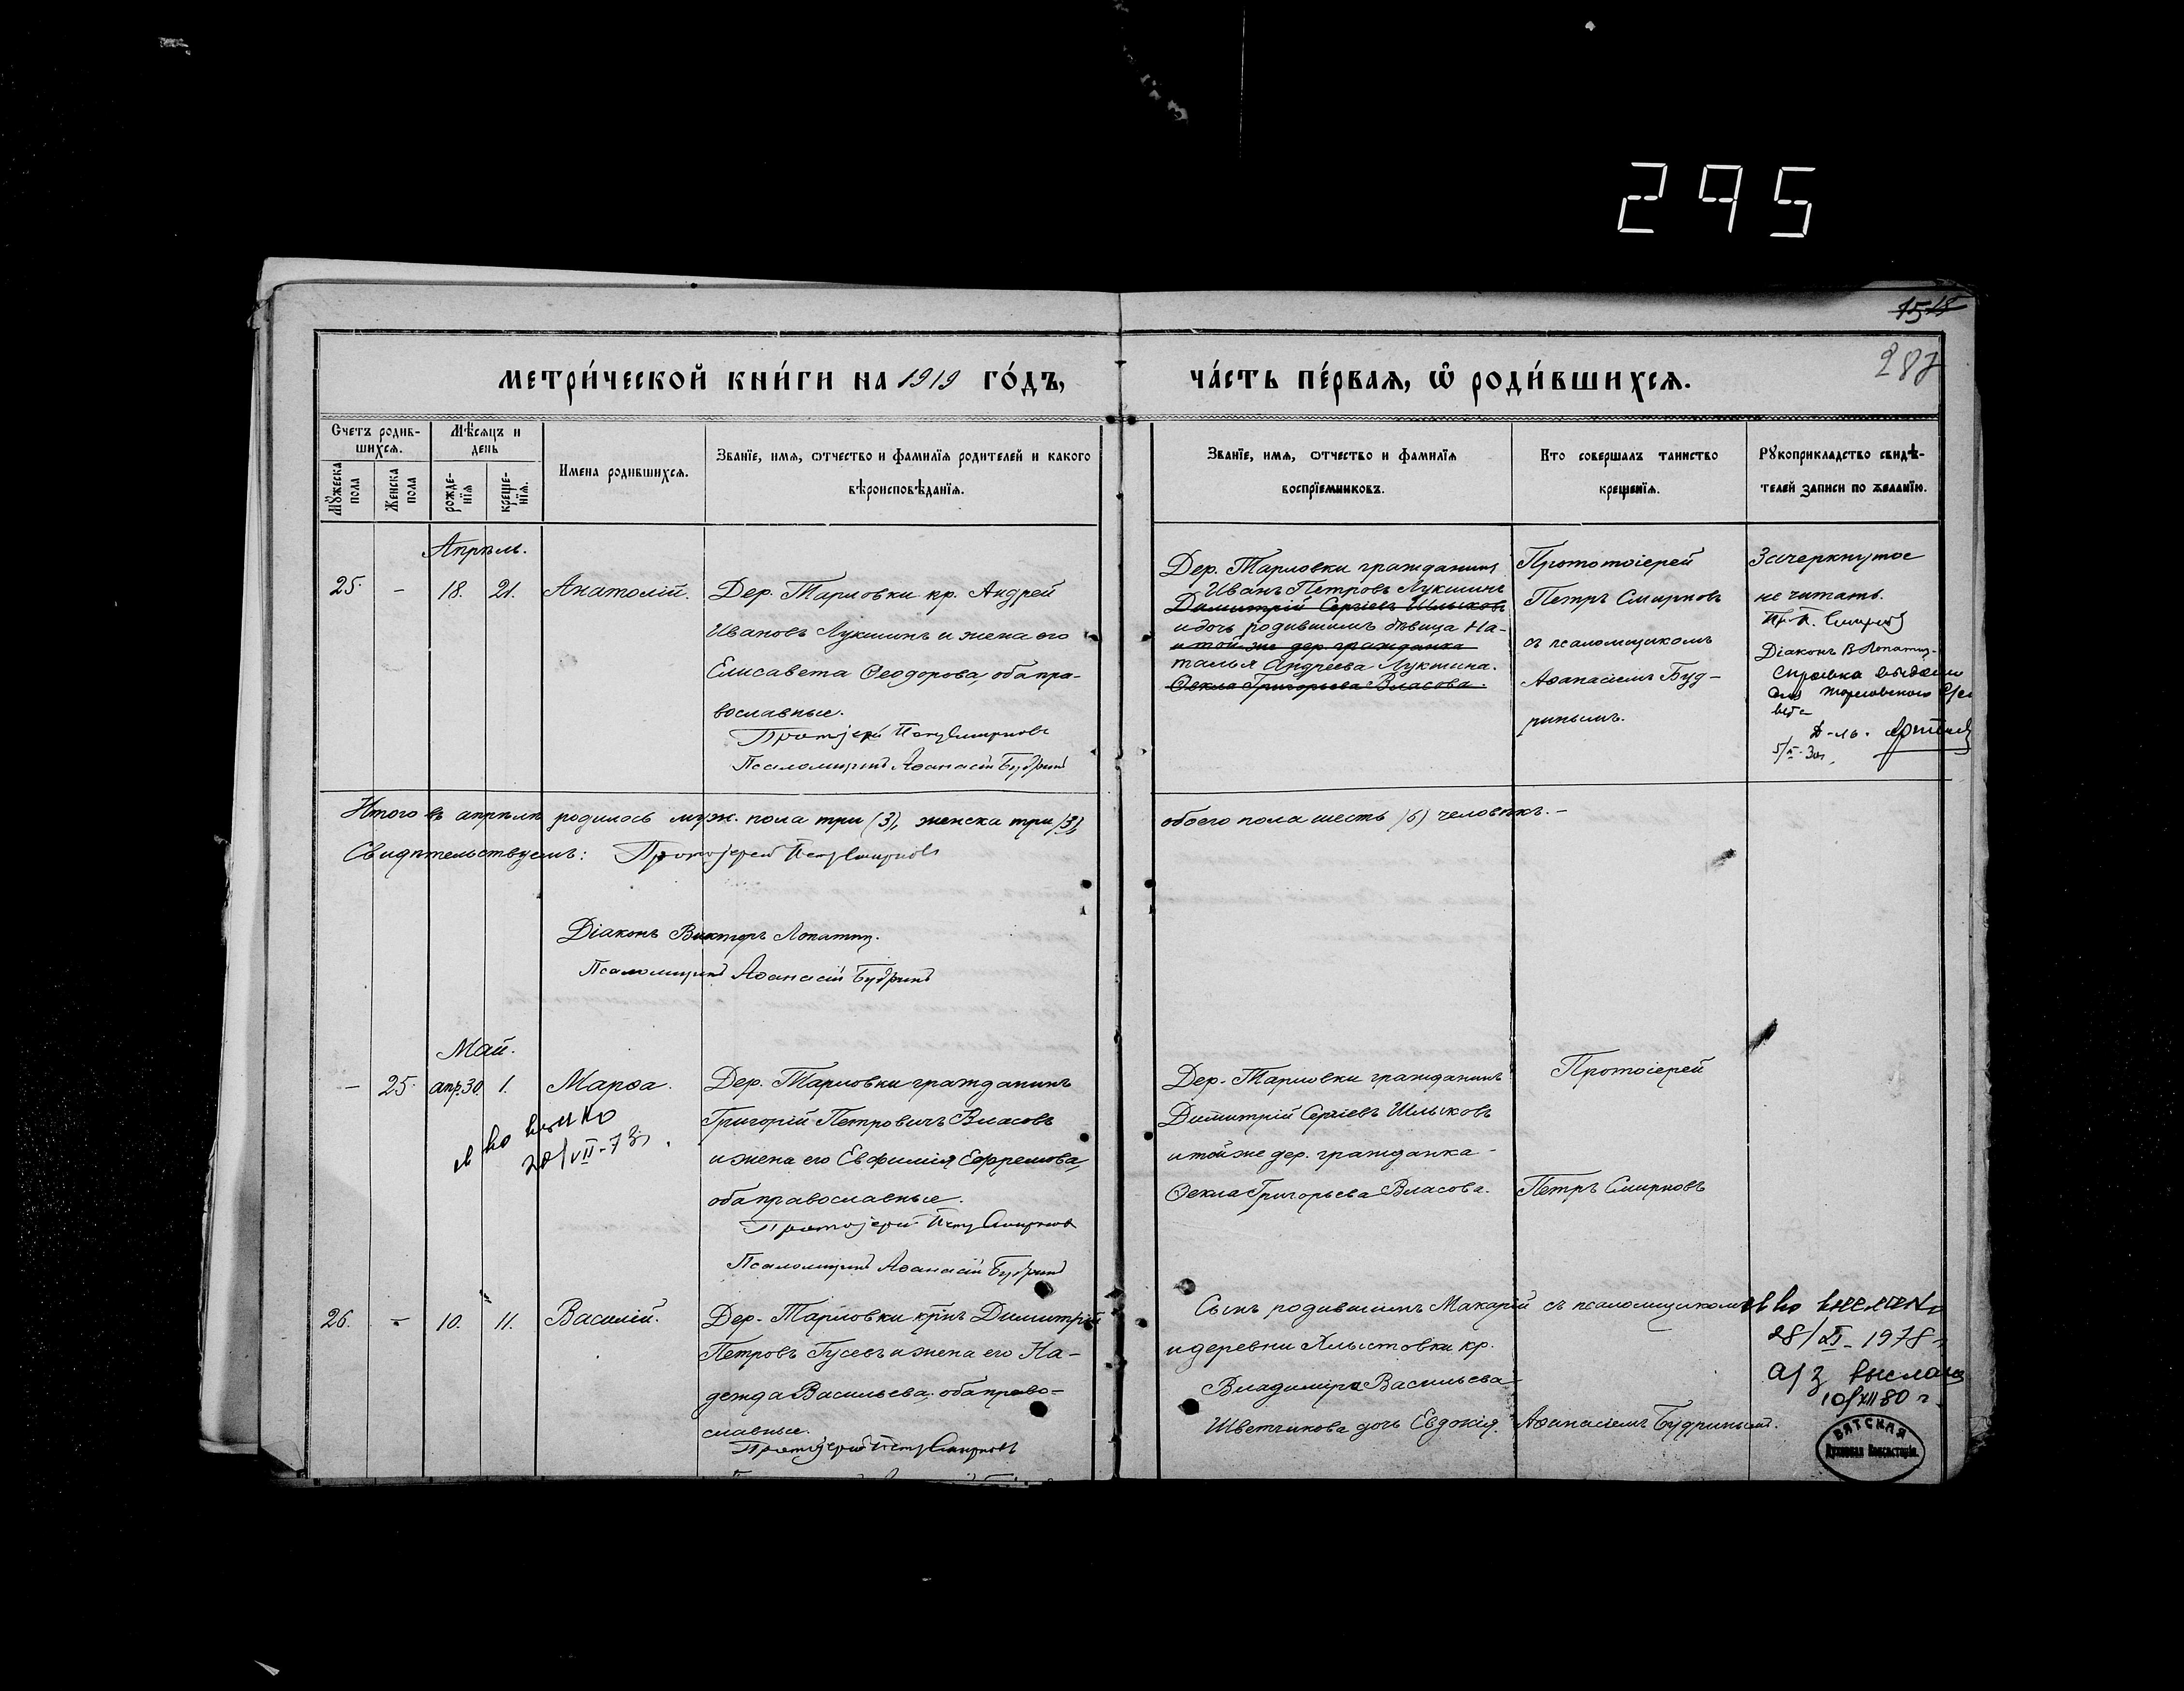 295
15 18
287
МЕТРИ́ЧЕСКОЙ КНИ́ГИ НА 1919 ГО́ДЪ,
ЧА́СТЬ ПЕ́РВАѦ, Ѽ РОДИ́ВШИХСѦ.
Счетъ родив-
шихсѧ.
Мꙋжеска пола
Женска пола
Мѣсѧцъ и
день
рожде-
нїѧ
креще-
нїѧ.
Имена родившихсѧ.
Званїе, имѧ, ѡтчество и фамилїѧ родителей и какого
вѣроисповѣданїѧ.
Званїе, имѧ, ѡтчество и фамилїѧ
воспрїемниковъ.
Кто совершалъ таинство
крещенїѧ.
Рꙋкоприкладство свидѣ-
телей записи по желанїю.
Апрѣль.
25. - 18. 21. Анатолій.
Дер. Тарловки кр. Андрей
Ивановъ Лукшинъ и жена его
Елисавета Ѳеодорова, оба пра-
вославные.
Протоіерей Петръ Смирновъ
Псаломщикъ Аѳанасій Будринъ
Дер. Тарловки гражданинъ
Иванъ Петровъ Лукшинъ
Димитрій Сергіевъ Шлыковъ
и дочь родившимъ дѣвица На-
и той же дер. гражданка
талья Андреева Лукшина.
Ѳекла Григорьева Власова.
Протоіерей
Петръ Смирновъ
съ псаломщикомъ
Аѳанасіемъ Буд-
ринымъ.
Зачеркнутое
не читать.
Пр. П. Смирновъ
Діаконъ В. Лопатин-
Справка выдана
для Тарловского
Итого въ апрѣлѣ родилось муж. пола три (3), женска три (3),
обоего пола шесть (6) человѣкъ. -
Свидѣтельствуемъ: Протоіерей Петръ Смирновъ
Діаконъ Викторъ Лопатин.
Псаломщикъ Аѳанасій Будринъ
Май.
- 25. апр. 30. 1. Марѳа.
20/VII-73г.
Дер. Тарловки гражданинъ
Григорій Петровичъ Власовъ
и жена его Евфимія Ефремова,
оба православные.
Протоіерей Петръ Смирновъ
Псаломщикъ Аѳанасій Будринъ
Дер. Тарловки гражданинъ
Димитрій Сергіевъ Шлыковъ
и той же дер. гражданка -
Ѳекла Григорьева Власова.
Протоіерей
Петръ Смирновъ
26. - 10. 11. Василій.
Дер. Тарловки кр-нъ Димитрій
Петровъ Гусевъ и жена его На-
дежда Васильева, оба право-
славные.
Протоіерей Петръ Смирновъ
Сынъ родившимъ Макарій
и деревни Хлыстовки кр.
Владиміра Васильева
Шветчикова дочь Евдокія.
съ псаломщикомъ
Аѳанасіемъ Будринымъ.
28/XI-1978 г
а/з выслана
10/XII 80 г.
ВЯТСКАЯ
Духовная Консисторія.